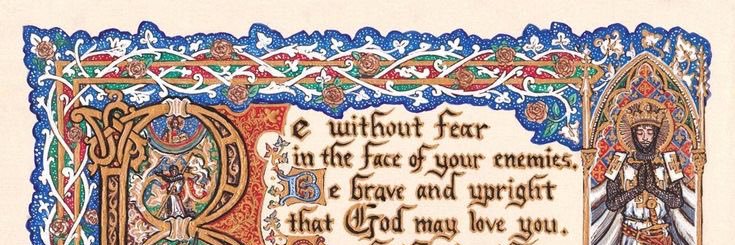 Be without fear
in the face of your enemies.
Be brave and upright
that God may love you.